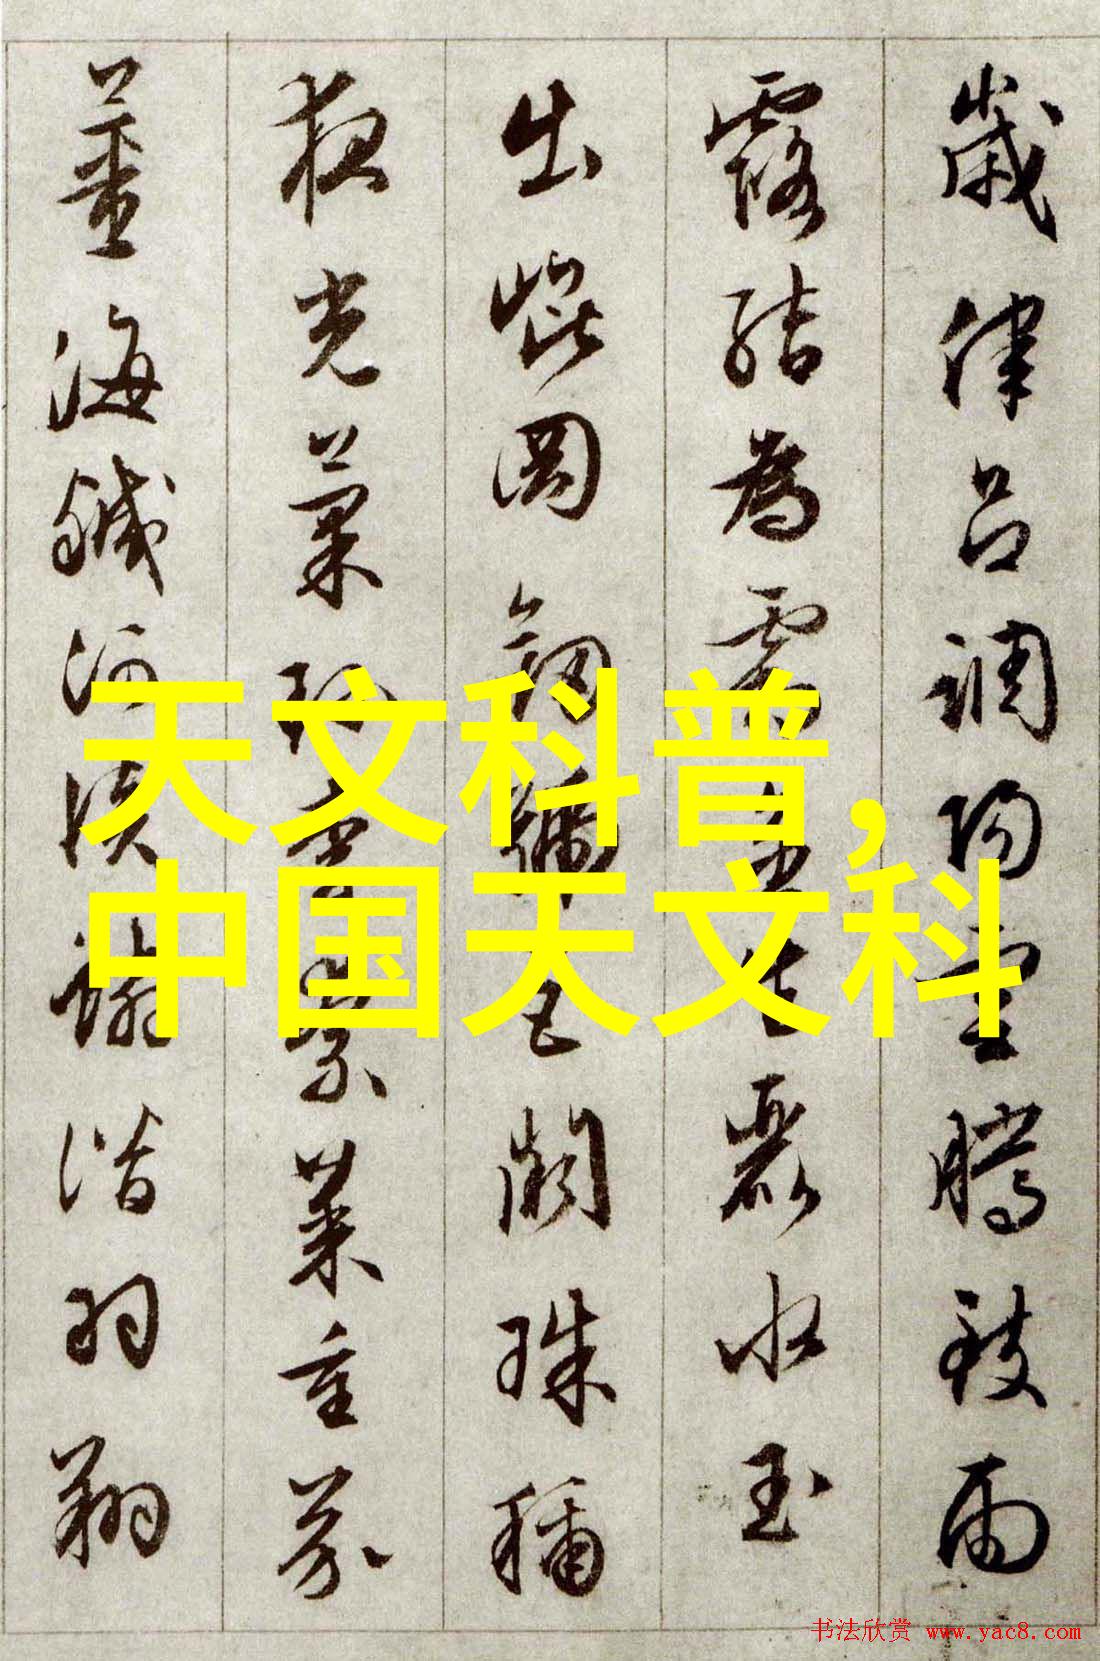 歲律呂調陽雲騰致雨
露結為霜金生麗水玉
出崐岡劍號巨闕珠稱
夜光菓珎李柰菜重芥
薑海鹹河淡鱗潛羽翔
天文科普,
中国天文科
书法欣赏 www.yac8.com